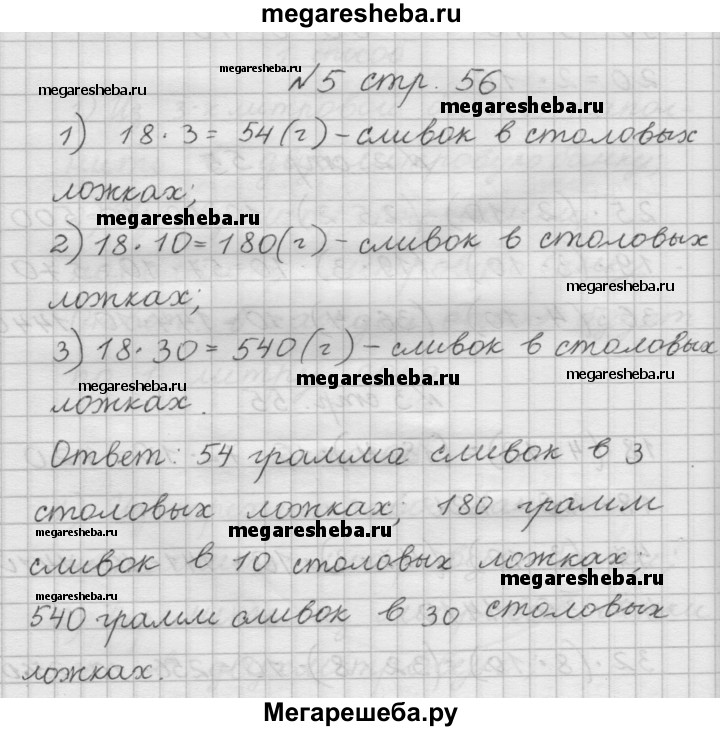 megaresheba.ru
№5 стр. 56
megaresheba.ru
megaresheba.ru
megaresheba.ru
1) 18·3=54(г)-сливок в столовых
ложках;
megaresheba.ru
2) 18·10=180(г)-сливок в столовых
ложках;
megaresheba.ru
3) 18·30=540(г)-сливок в столовых
megaresheba.ru
megaresheba.ru
megaresheba.ru
ложках.
Ответ: 54 грамма сливок в 3
столовых ложках; 180 грамм
megaresheba.ru
megaresheba.ru
сливок в 10 столовых ложках;
megaresheba.ru
megaresheba.ru
540 грамм сливок в 30 столовых
ложках.
Мегарешеба.ру